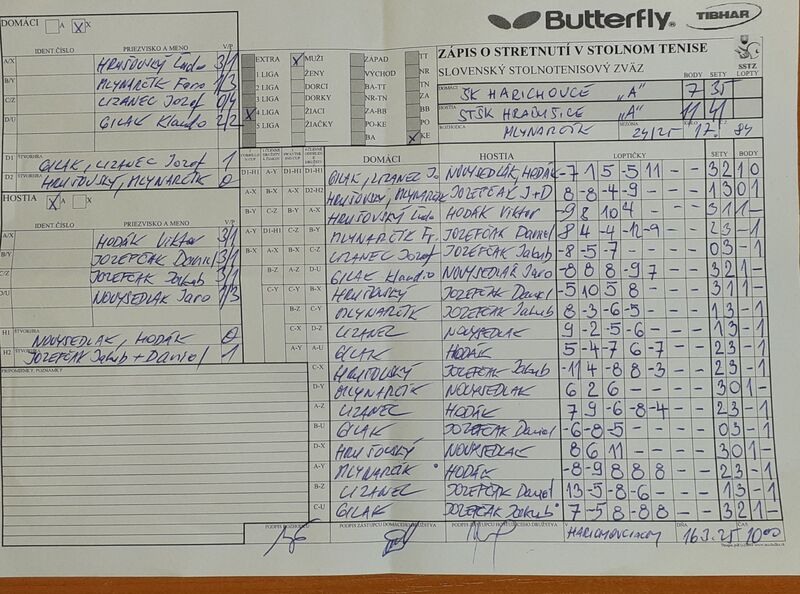 Butterfly
TIBHAR
DOMÁCI A X X
ZÁPIS O STRETNUTÍ V STOLNOM TENISE
SLOVENSKÝ STOLNOTENISOVÝ ZVÄZ
SSTZ
IDENT ČÍSLO PRIEZVISKO A MENO V/P
A/X HRUŤOVSKÝ Ľudo 3/1
B/Y MLYNARČÍK Fero 1/3
C/Z LIZANEC Jozef 0/4
D/U GILAK Klaudio 2/2
EXTRA X MUŽI ZÁPAD TT
1 LIGA ŽENY VÝCHOD NR
2 LIGA DORCI BA-TT TN
3 LIGA DORKY NR-TN ZA
X 4 LIGA ŽIACI ZA-BB BB
5 LIGA ŽIAČKY PO-KE PO
BA X KE
BODY SETY LOPTY
DOMÁCI ŠK HARICHOVCE "A" 7 35
HOSTIA STŠK HRABUŠICE "A" 11 41
ROZHODCA MLYNARČÍK SEZÓNA 24/25 17.
D1 ŠTVORHRA GILAK, LIZANEC Jozef 1
D2 HRUŤOVSKÝ, MLYNARČÍK 0
HOSTIA X A X
IDENT ČÍSLO PRIEZVISKO A MENO V/P
A/X HODÁK Viktor 3/1
B/Y JOZEFČÁK Daniel 3/1
C/Z JOZEFČÁK Jakub 3/1
D/U NOVYSEDLAK Jaro 1/3
H1 ŠTVORHRA NOVYSEDLAK, HODÁK 0
H2 ŠTVORHRA JOZEFČÁK Jakub + Daniel 1
PRIPOMIENKY, POZNÁMKY
DOMÁCI HOSTIA LOPTIČKY SETY BODY
GILAK, LIZANEC Jo NOVYSEDLÁK, HODÁK -7 1 5 -5 11 - - 3 2 1 0
HRUŤOVSKÝ, MLYNAREK JOZEFČÁK J+D 8 -8 -4 -9 - - - 1 3 0 1
HRUŤOVSKÝ Ľudo HODÁK Viktor -9 8 10 4 - - - 3 1 1 -
MLYNARČÍK Fr. JOZEFČÁK Daniel 8 4 -4 -12 -9 - - 2 3 - 1
LIZANEC Jozef JOZEFČÁK Jakub -8 -5 -7 - - - - 0 3 - 1
GILAK Klaudio NOVYSEDLÁK Jaro -8 8 8 -9 7 - - 3 2 1 -
HRUŤOVSKÝ JOZEFČAK Daniel -5 10 5 8 - - - 3 1 1 -
MLYNARČÍK JOZEFČÁK Jakub 8 -3 -6 -5 - - - 1 3 - 1
LIZANEC NOVYSEDLAK 9 -2 -5 -6 - - - 1 3 - 1
GILAK HODÁK 5 -4 -7 6 -7 - - 2 3 - 1
HRUŤOVSKÝ JOZEFČAK Jakub -11 4 -8 8 -3 - - 2 3 - 1
MLYNARČÍK NOVYSEDLAK 6 2 6 - - - - 3 0 1 -
LIZANEC HODÁK 7 9 -6 -8 -4 - - 2 3 - 1
GILAK JOZEFČAK Daniel -6 -8 -5 - - - - 0 3 - 1
HRUŤOVSKÝ NOVYSEDLAK 8 6 11 - - - - 3 0 1 -
MLYNARČÍK HODÁK -8 -9 8 8 8 - - 2 3 - 1
LIZANEC JOZEFČÁK Daniel 13 -5 -8 -6 - - - 1 3 - 1
GILAK JOZEFČÁK Jakub 7 -5 8 -8 8 - - 3 2 1 -
PODPIS ROZHODCU PODPIS ZÁSTUPCU DOMÁCEHO DRUŽSTVA PODPIS ZÁSTUPCU HOSŤUJÚCEHO DRUŽSTVA V HARICHOVCIACH DŇA 16.3.25 ČAS 10:00